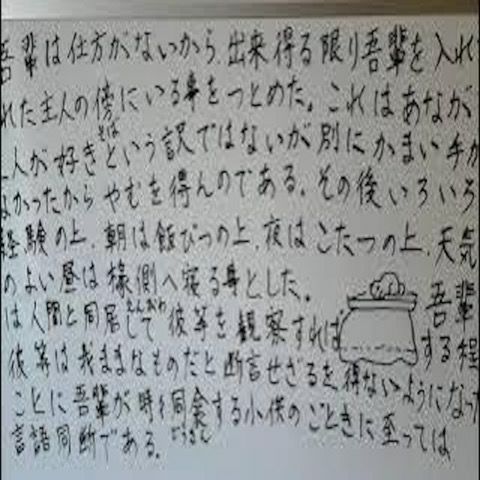 吾輩は仕方がないから、出来得る限り吾輩を入れ
れた主人の傍にいる事をつとめた。これはあなが
主人が好きという訳ではないが別にかまい手が
なかったからやむを得んのである。その後いろいろ
経験の上、朝は飯びつの上、夜はこたつの上、天気
のよい昼は椽側へ寝る事とした。
吾輩
は人間と同居して彼等を観察すれば
する程
彼等は我ままなものだと断言せざるを得ないようになっ
ことに吾輩が時々同衾する小供のごときに至っては
言語同断である。
そば
えんがわ
どうきん